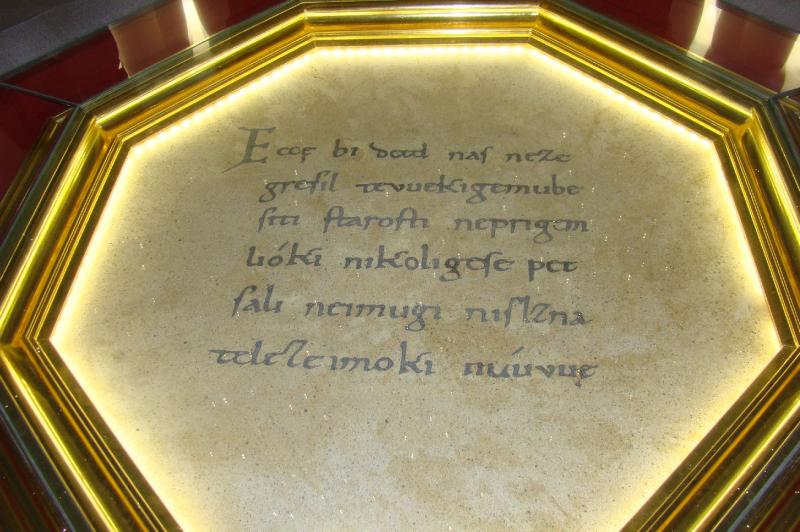 Eccę bi detd naſ neze
greſil tevuekigemube
ſiti ſtaroſti neprigem
lióki nikoligeſe pet
ſali neimugi niſlzna
telezeimoki núuvuę